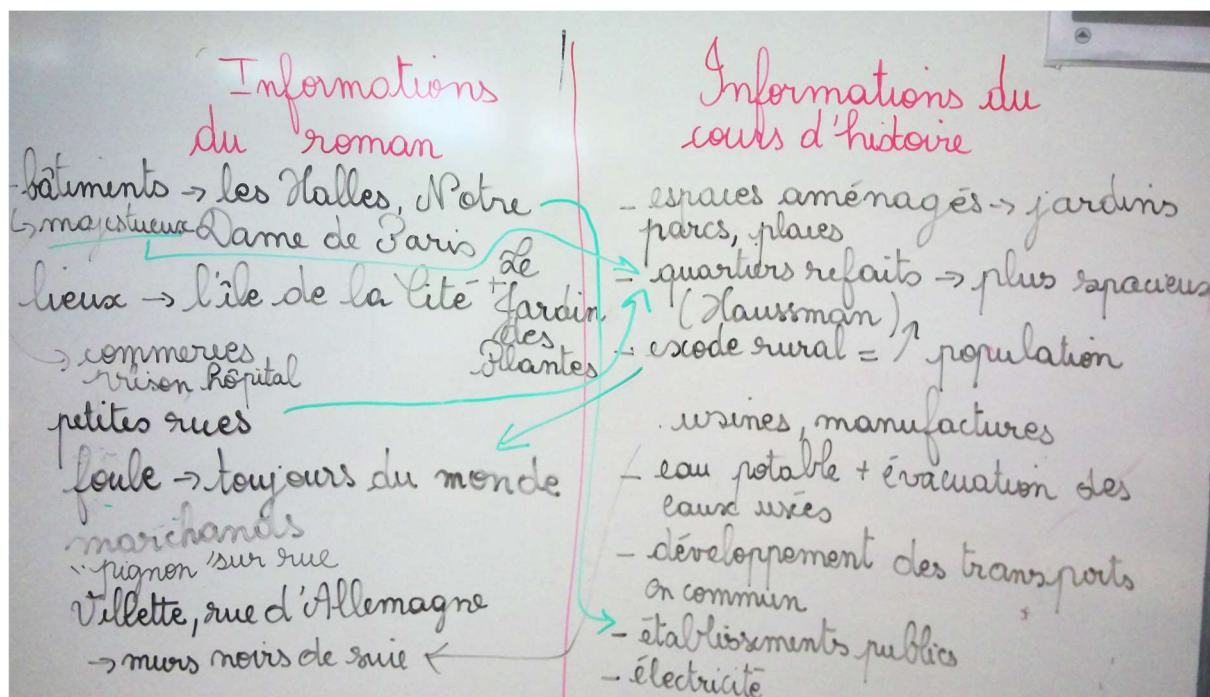 Informations
du roman
- bâtiments → les Halles, Notre
↳ majestueux Dame de Paris
lieux → l'île de la Cité + Le
Jardin
des
Plantes
→ commerces
prison hôpital
petites rues
foule → toujours du monde
marchands
"pignon sur rue
Villette, rue d'Allemagne
→ murs noirs de suie
Informations du
cours d'histoire
- espaces aménagés → jardins
parcs, places
- quartiers refaits → plus spacieux
(Haussman)
- exode rural = ↗ population
. usines, manufactures
- eau potable + évacuation des
eaux usées
- développement des transports
en commun
- établissements publics
- électricité